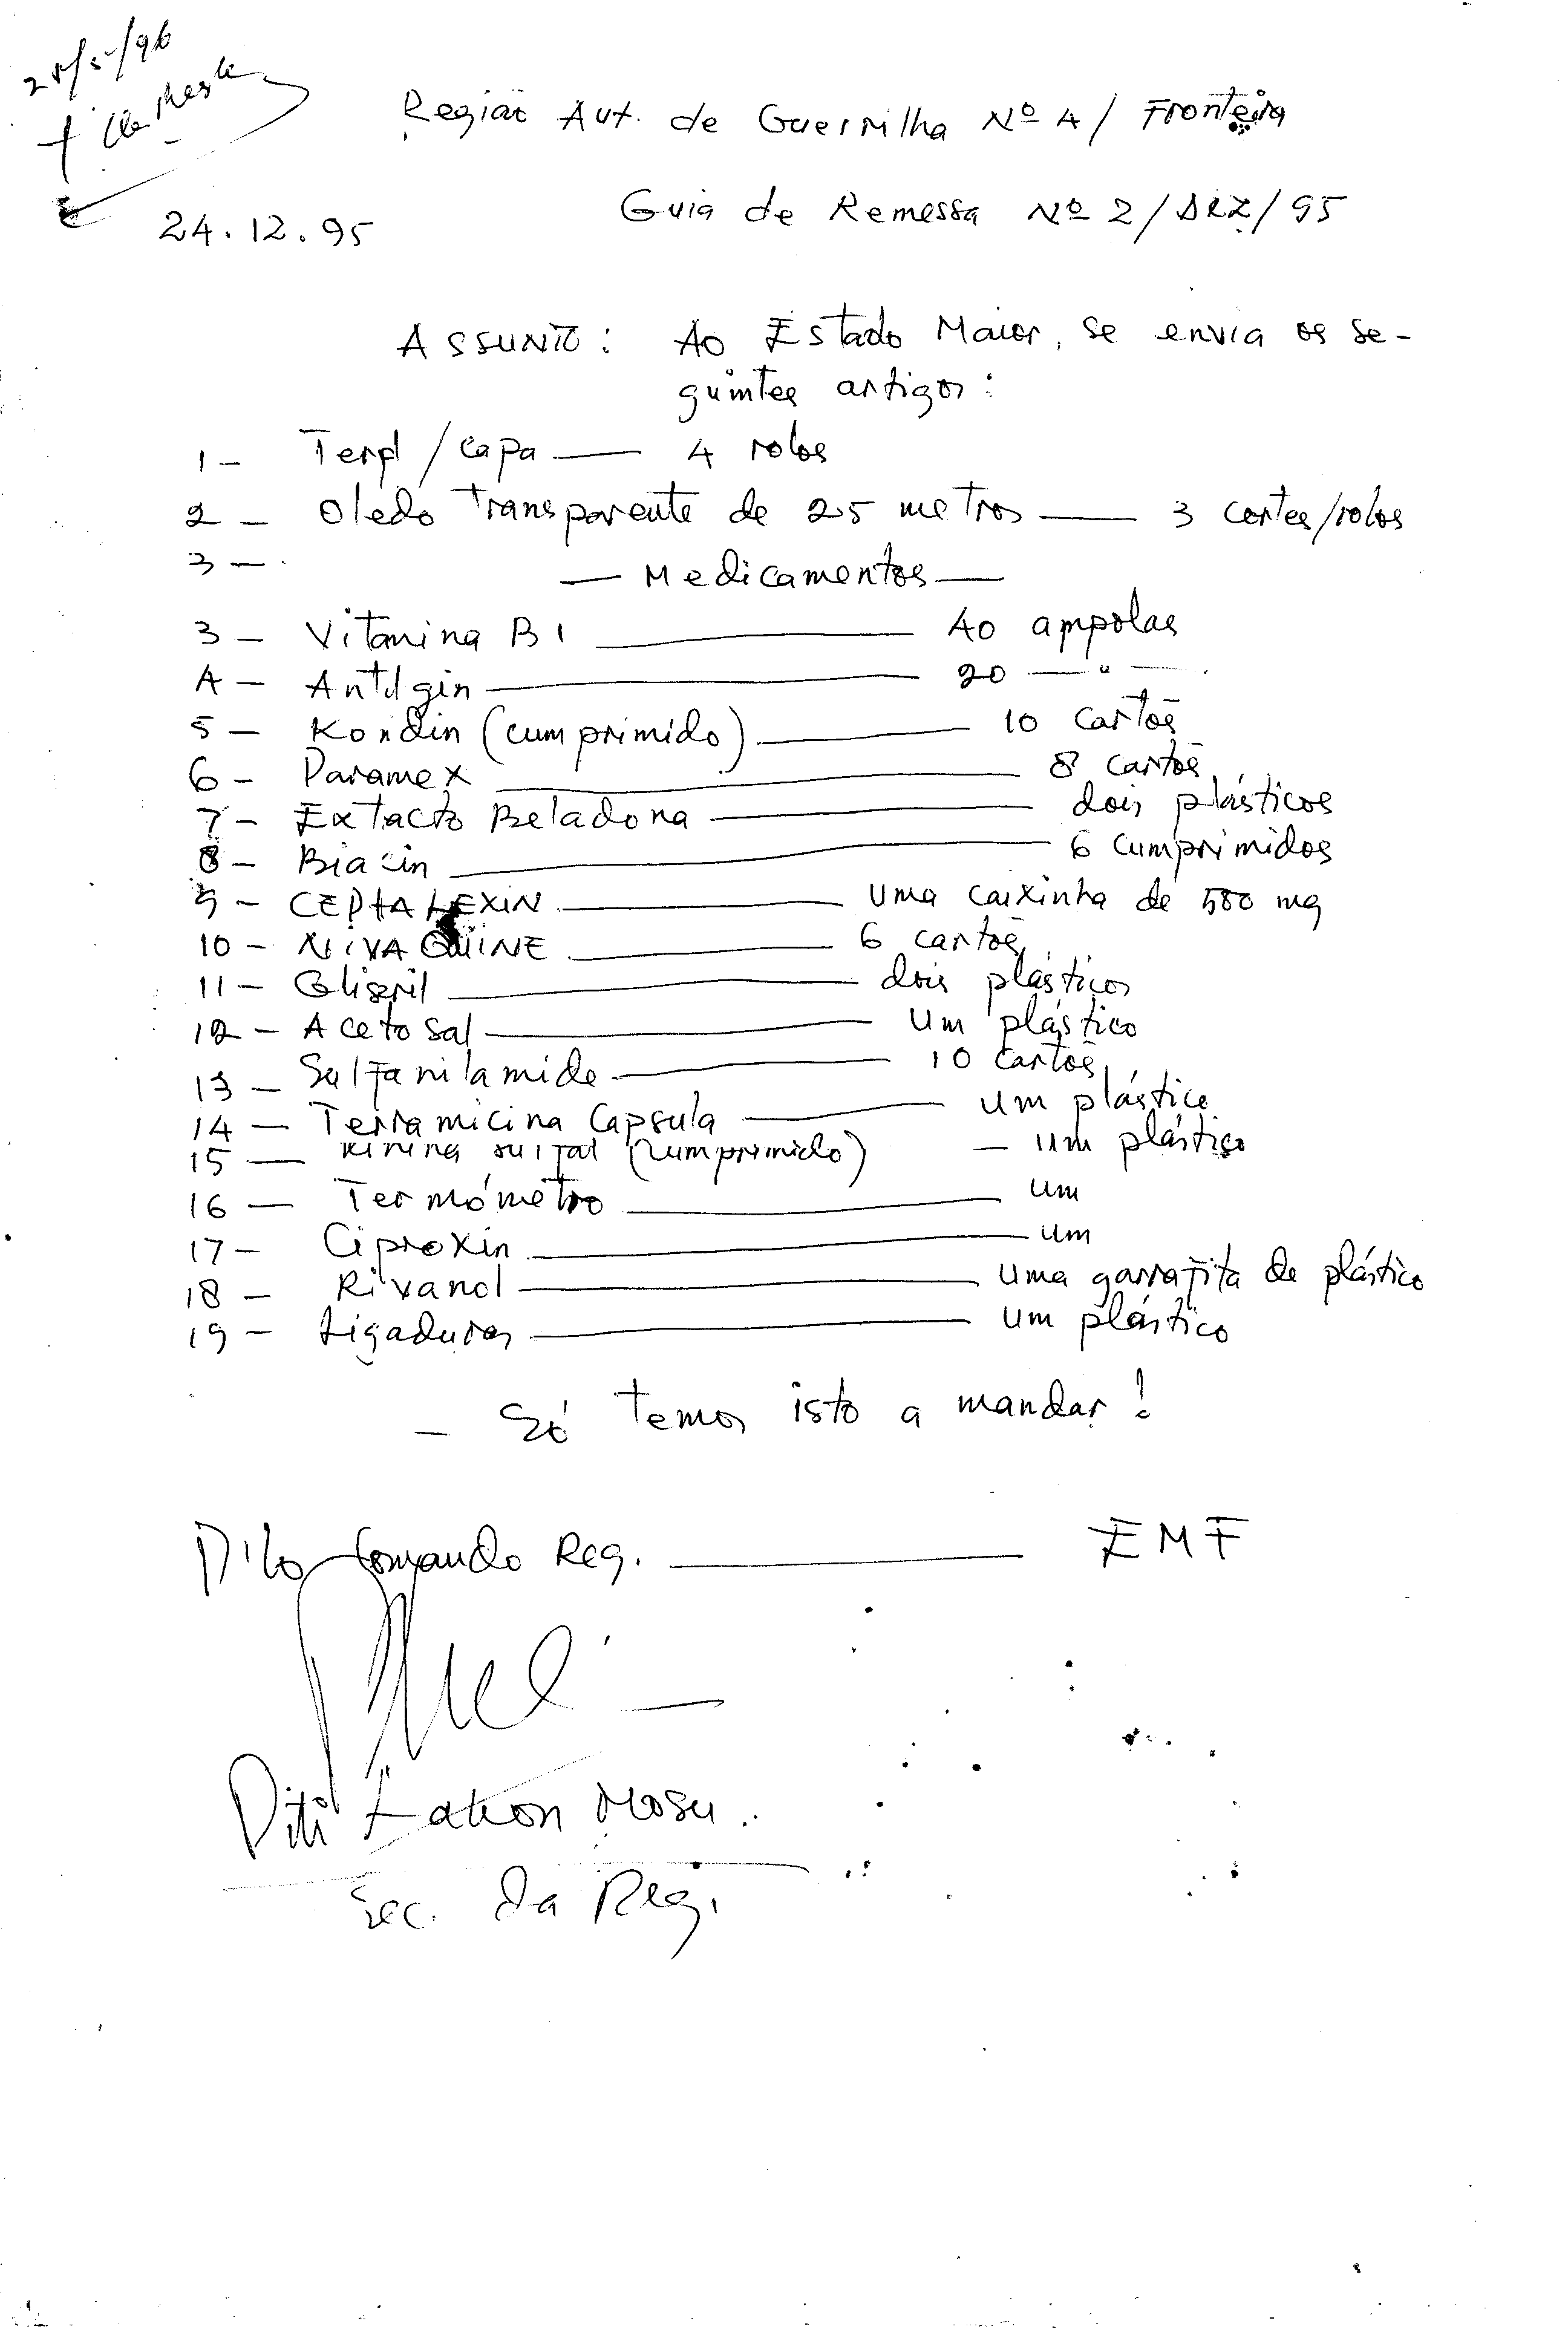 Região Aut. de Guerrilha Nº 4 / Fronteira
24.12.95
Guia de Remessa Nº 2/DEZ/95
ASSUNTO: Ao Estado Maior, se envia os se-
guintes artigos:
1 - Terpl / Capa — 4 rolos
2 - Oledo Transparente de 25 metros — 3 cortes/rolos
3 -
— Medicamentos —
3 - Vitamina B1 — 40 ampolas
4 - Antalgin — 20 — " —
5 - Kondin (cumprimido) — 10 cartos
6 - Paramex — 8 cartos
7 - Extacto Beladona — dois plásticos
8 - Biacin — 6 cumprimidos
9 - CEPHALEXIN — uma caixinha de 500 mg
10 - NIVAQUINE — 6 cartos
11 - — dois plásticos
12 - Aceto sal — um plástico
13 - Sulfanilamide — 10 cartos
14 - Terramicina Capsula — um plástico
15 — Kinina sulfat (cumprimido) — um plástico
16 — Termómetro — um
17 - Ciproxin — um
18 - Rivanol — uma garrafita de plástico
19 - Ligaduras — um plástico
- Só temos isto a mandar!
P'lo Comando Reg. — EMF
Sec. da Reg.